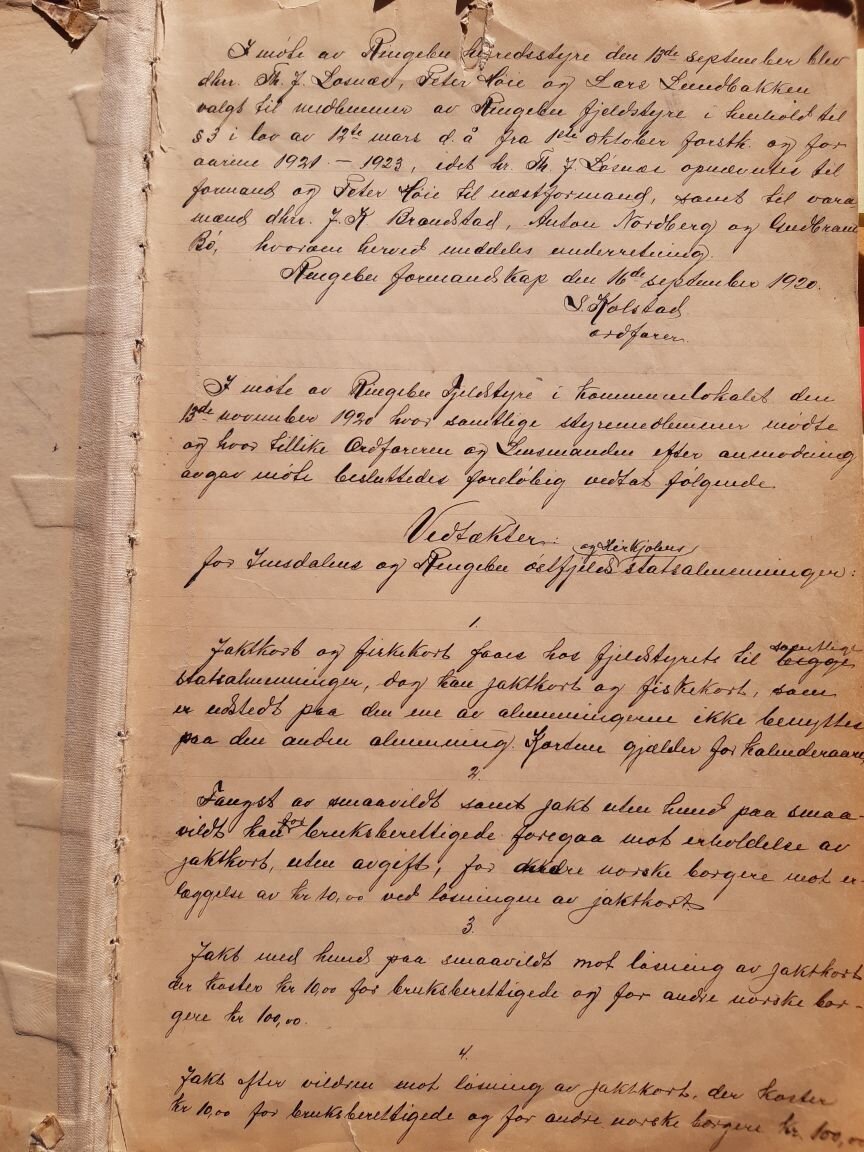 I møte av Ringebu herredsstyre den 13de september blev
dhrr. Th. J. Losnæs, Peter Høie og Lars Lundbakken
valgt til medlemmer av Ringebu fjeldstyre i henhold til
§ 3 i lov av 12te mars d. å. fra 1ste oktober førstk. og for
aarene 1921 – 1923, idet hr. Th. J. Losnæs opnævntes til
formand og Peter Høie til næstformand, samt til vara
mænd dhrr. J. K. Brandstad, Anton Nordberg og Gudbrand
Bø, hvorom herved meddeles underretning.
Ringebu formandskap den 16de september 1920.
S. Kolstad
ordfører.
I møte av Ringebu Fjeldstyre i kommunelokalet den
13de november 1920 hvor samtlige styremedlemmer mødte
og hvor tillike Ordføreren og Lensmanden efter anmodning
avgav møte besluttedes foreløbig vedtat følgende
Vedtækter:
for Imsdalens og Ringebu østfjelds og Hirkjølens statsalmenninger:
1.
Jaktkort og fiskekort faaes hos fjeldstyrets til begge samtlige
statsalmenninger, dog kan jaktkort og fiskekort, som
er utstedt paa den ene av almenningerne ikke benyttes
paa den anden almenning. Kortene gjælder for kalenderaaret
2.
Fangst av smaavildt samt jakt uten hund paa smaa-
vildt kan for bruksberettigede foregaa mot erholdelse av
jaktkort, uten avgift, for andre norske borgere mot er-
læggelse av kr 10,00 ved løsningen av jaktkort
3.
Jakt med hund paa smaavildt mot løsning av jaktkort
der koster kr 10,00 for bruksberettigede og for andre norske bor-
gere kr 100,00.
4.
Jakt efter vildren mot løsning av jaktkort, der koster
kr 10,00 for bruksberettigede og for andre norske borgere kr. 100,00